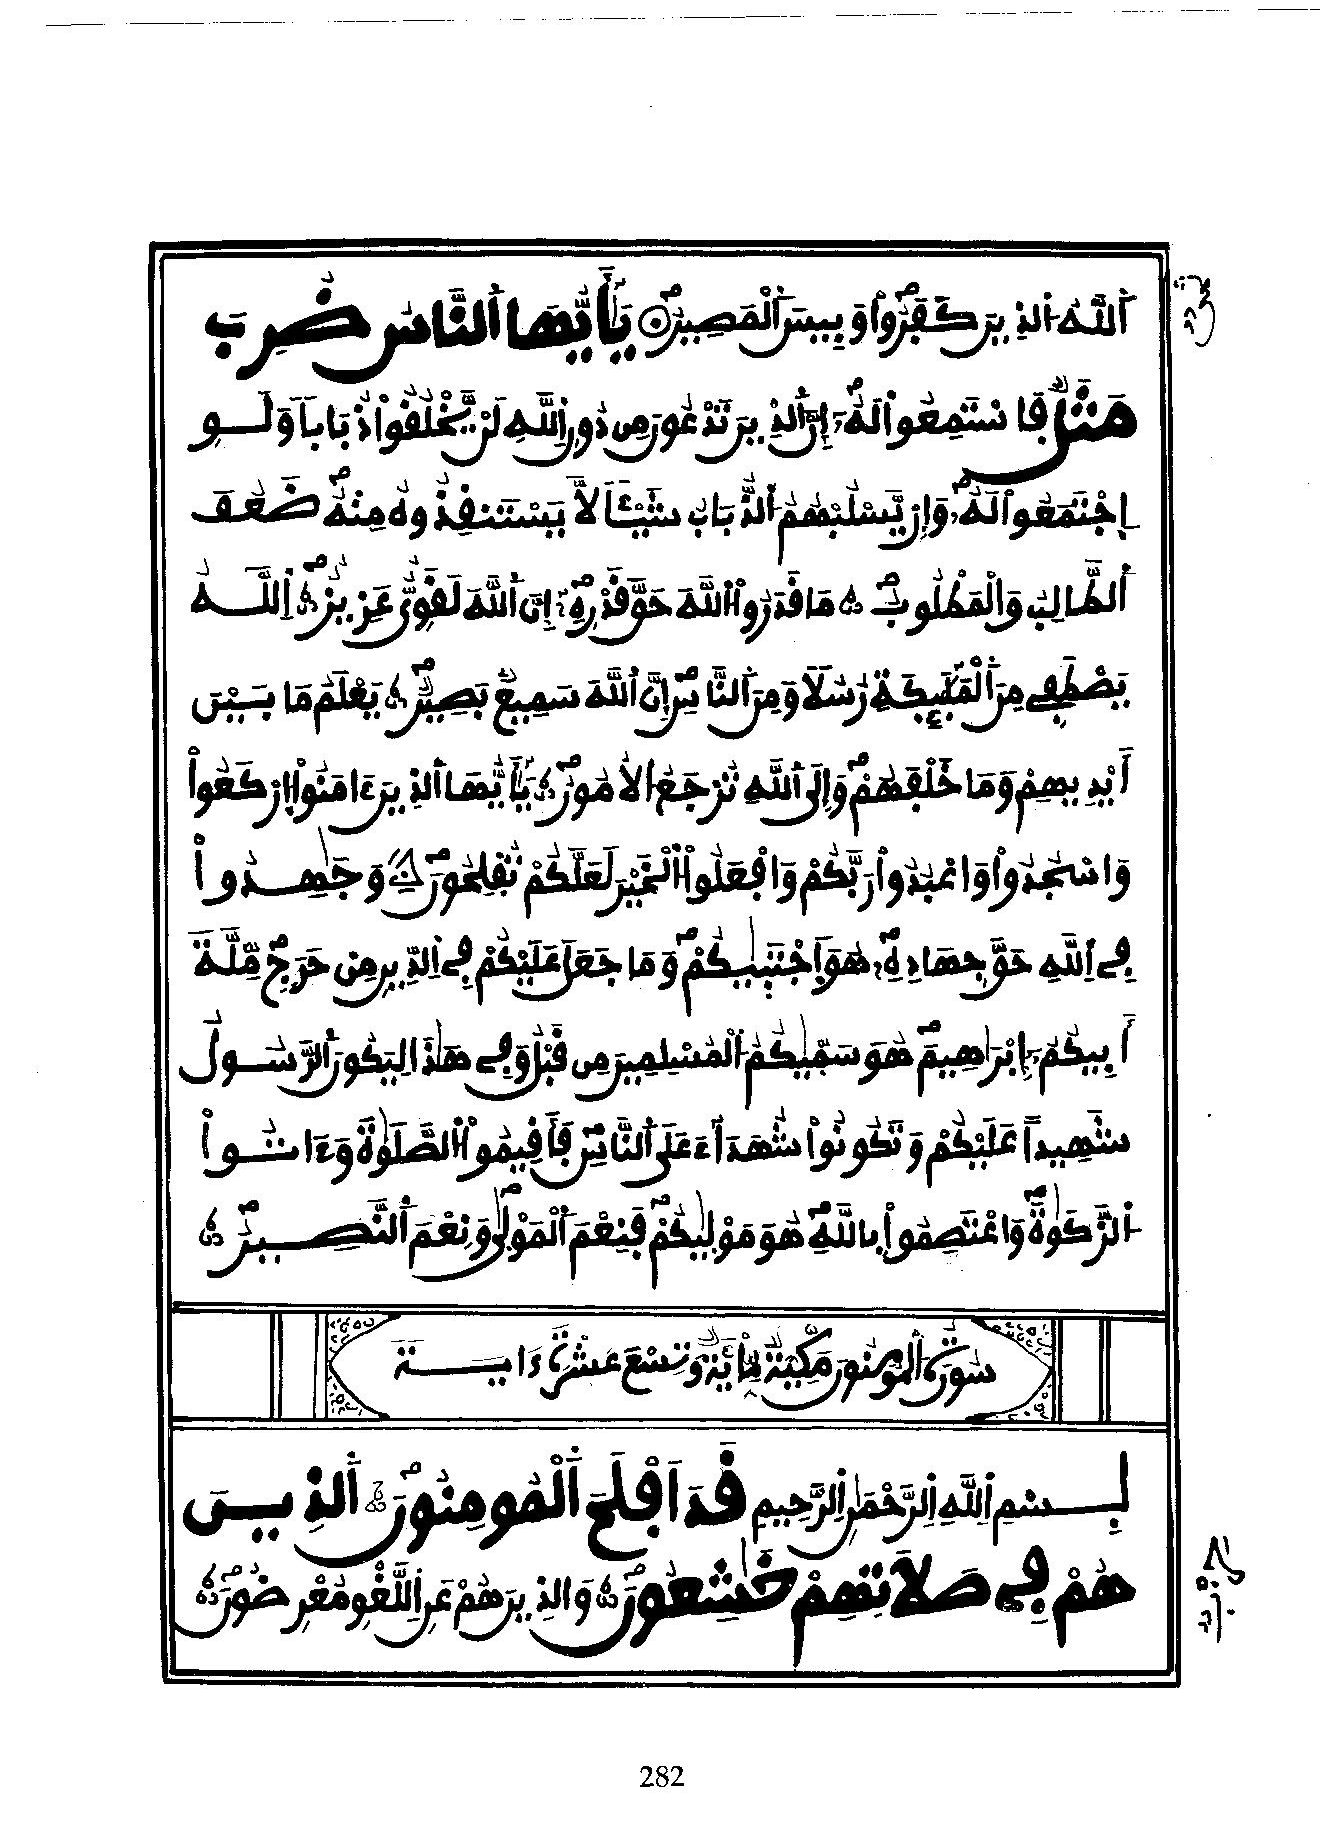 اُ۬للَّهُ اُ۬لذِينَ كَفَرُواْ وَبِيسَ اَ۬لْمَصِيرُ يَٰأَيُّهَا اَ۬لنَّاسُ ضُرِبَ
مَثَلٞ فَاسْتَمِعُواْ لَهُۥٓ إِنَّ اَ۬لذِينَ تَدْعُونَ مِن دُونِ اِ۬للَّهِ لَنْ يَّخْلُقُواْ ذُبَاباٗ وَلَوِ
اِ۪جْتَمَعُواْ لَهُۥ وَإِنْ يَّسْلُبْهُمُ اُ۬لذُّبَابُ شَيْـٔاٗ لَّا يَسْتَنقِذُوهُ مِنْهُ ضَعُفَ
اَ۬لطَّالِبُ وَالْمَطْلُوبُ مَا قَدَرُواْ اُ۬للَّهَ حَقَّ قَدْرِهِۦٓ إِنَّ اَ۬للَّهَ لَقَوِيٌّ عَزِيزٌ اِ۬للَّهُ
يَصْطَفِے مِنَ اَ۬لْمَلَٰٓئِكَةِ رُسُلاٗ وَمِنَ اَ۬لنَّاسِ إِنَّ اَ۬للَّهَ سَمِيعُۢ بَصِيرٞ يَعْلَمُ مَا بَيْنَ
أَيْدِيهِمْ وَمَا خَلْفَهُمْ وَإِلَى اَ۬للَّهِ تُرْجَعُ اُ۬لْأُمُورُ يَٰأَيُّهَا اَ۬لذِينَ ءَامَنُواْ اُ۪رْكَعُواْ
وَاسْجُدُواْ وَاعْبُدُواْ رَبَّكُمْ وَافْعَلُواْ اُ۬لْخَيْرَ لَعَلَّكُمْ تُفْلِحُونَ وَجَٰهِدُواْ
فِے اِ۬للَّهِ حَقَّ جِهَادِهِۦ هُوَ اَ۪جْتَبَيٰكُمْ وَمَا جَعَلَ عَلَيْكُمْ فِے اِ۬لدِّينِ مِنْ حَرَجٖ مِّلَّةَ
أَبِيكُمُۥٓ إِبْرَٰهِيمَ هُوَ سَمَّيٰكُمُ اُ۬لْمُسْلِمِينَ مِن قَبْلُ وَفِے هَٰذَا لِيَكُونَ اَ۬لرَّسُولُ
شَهِيداً عَلَيْكُمْ وَتَكُونُواْ شُهَدَآءَ عَلَى اَ۬لنَّاسِ فَأَقِيمُواْ اُ۬لصَّلَوٰةَ وَءَاتُواْ
اُ۬لزَّكَوٰةَ وَاعْتَصِمُواْ بِاللَّهِ هُوَ مَوْلَيٰكُمْ فَنِعْمَ اَ۬لْمَوْلَىٰ وَنِعْمَ اَ۬لنَّصِيرُ
سورة المومنون مكية مائة وتسع عشرة ءاية
بِسْمِ اِ۬للَّهِ اِ۬لرَّحْمَٰنِ اِ۬لرَّحِيمِ قَدَ اَفْلَحَ اَ۬لْمُومِنُونَ اَ۬لذِينَ
هُمْ فِے صَلَاتِهِمْ خَٰشِعُونَ وَالذِينَ هُمْ عَنِ اِ۬للَّغْوِ مُعْرِضُونَ
282